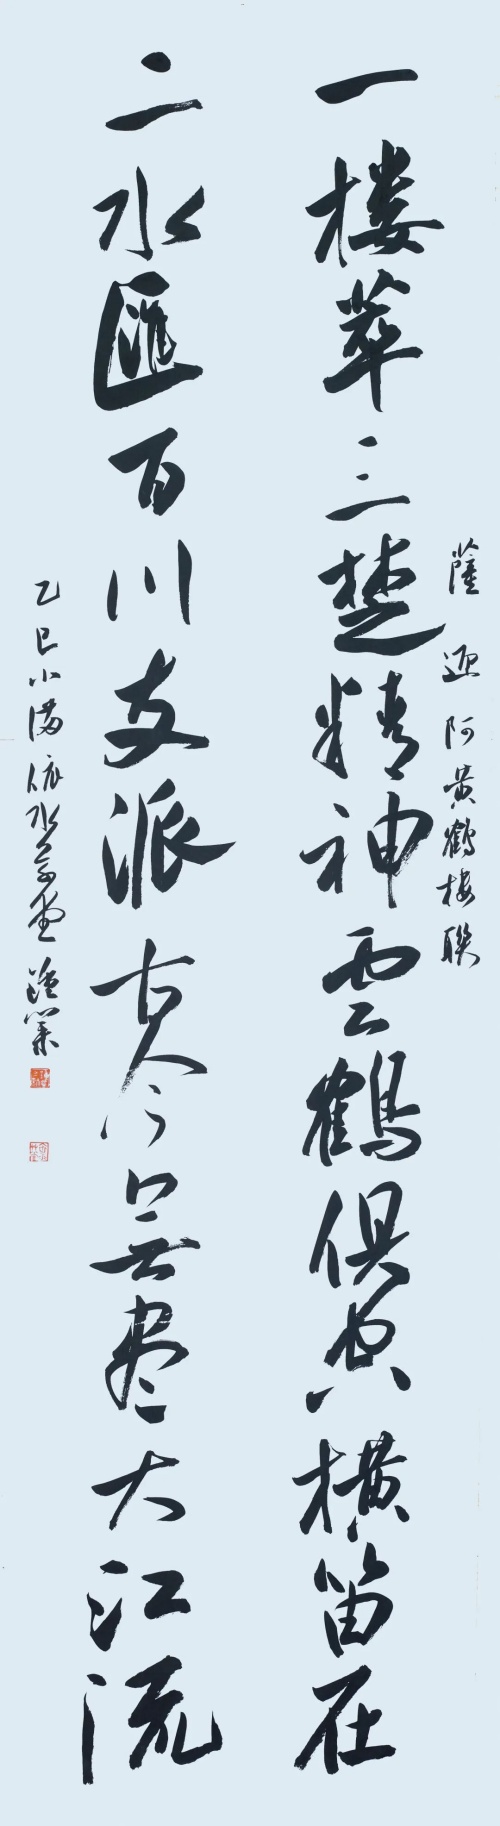 薩迎阿黄鶴楼聯
一楼萃三楚精神雲鶴俱空横笛在
二水匯百川支派古今無尽大江流
乙巳小满依水